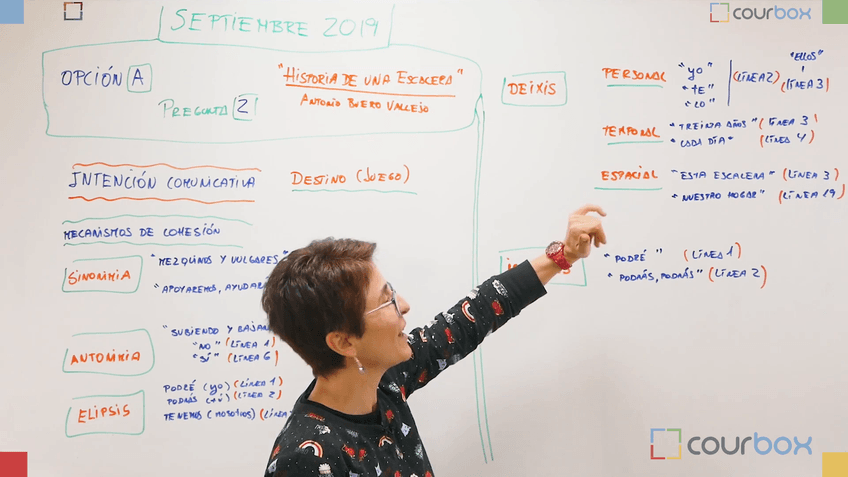 courbox
SEPTIEMBRE 2019
OPCIÓN A
PREGUNTA 2
"HISTORIA DE UNA ESCALERA"
ANTONIO BUERO VALLEJO
INTENCIÓN COMUNICATIVA
DESTINO (JUEGO)
MECANISMOS DE COHESIÓN
SINONIMIA
"MEZQUINOS Y VULGARES"
"APOYAREMOS,
ANTONIMIA
"SUBIENDO Y
"NO" (LÍNEA 1)
"SÍ" (LÍNEA 6)
ELIPSIS
PODRÉ (yo) (LÍNEA 1)
PODRÁS (tú) (LÍNEA 2)
TENEMOS (NOSOTROS) (LÍNEA
DEIXIS
PERSONAL
"YO"
"TE"
"LO"
(LÍNEA 2)
"ELLOS"
(LÍNEA 3)
TEMPORAL
"TREINTA AÑOS" (LÍNEA 3)
"CADA DÍA" (LÍNEA 4)
ESPACIAL
"ESTA ESCALERA" (LÍNEA 3)
"NUESTRO HOGAR" (LÍNEA 19)
"PODRÉ" (LÍNEA 1)
"PODRÁS, PODRÁS" (LÍNEA 2)
courbox